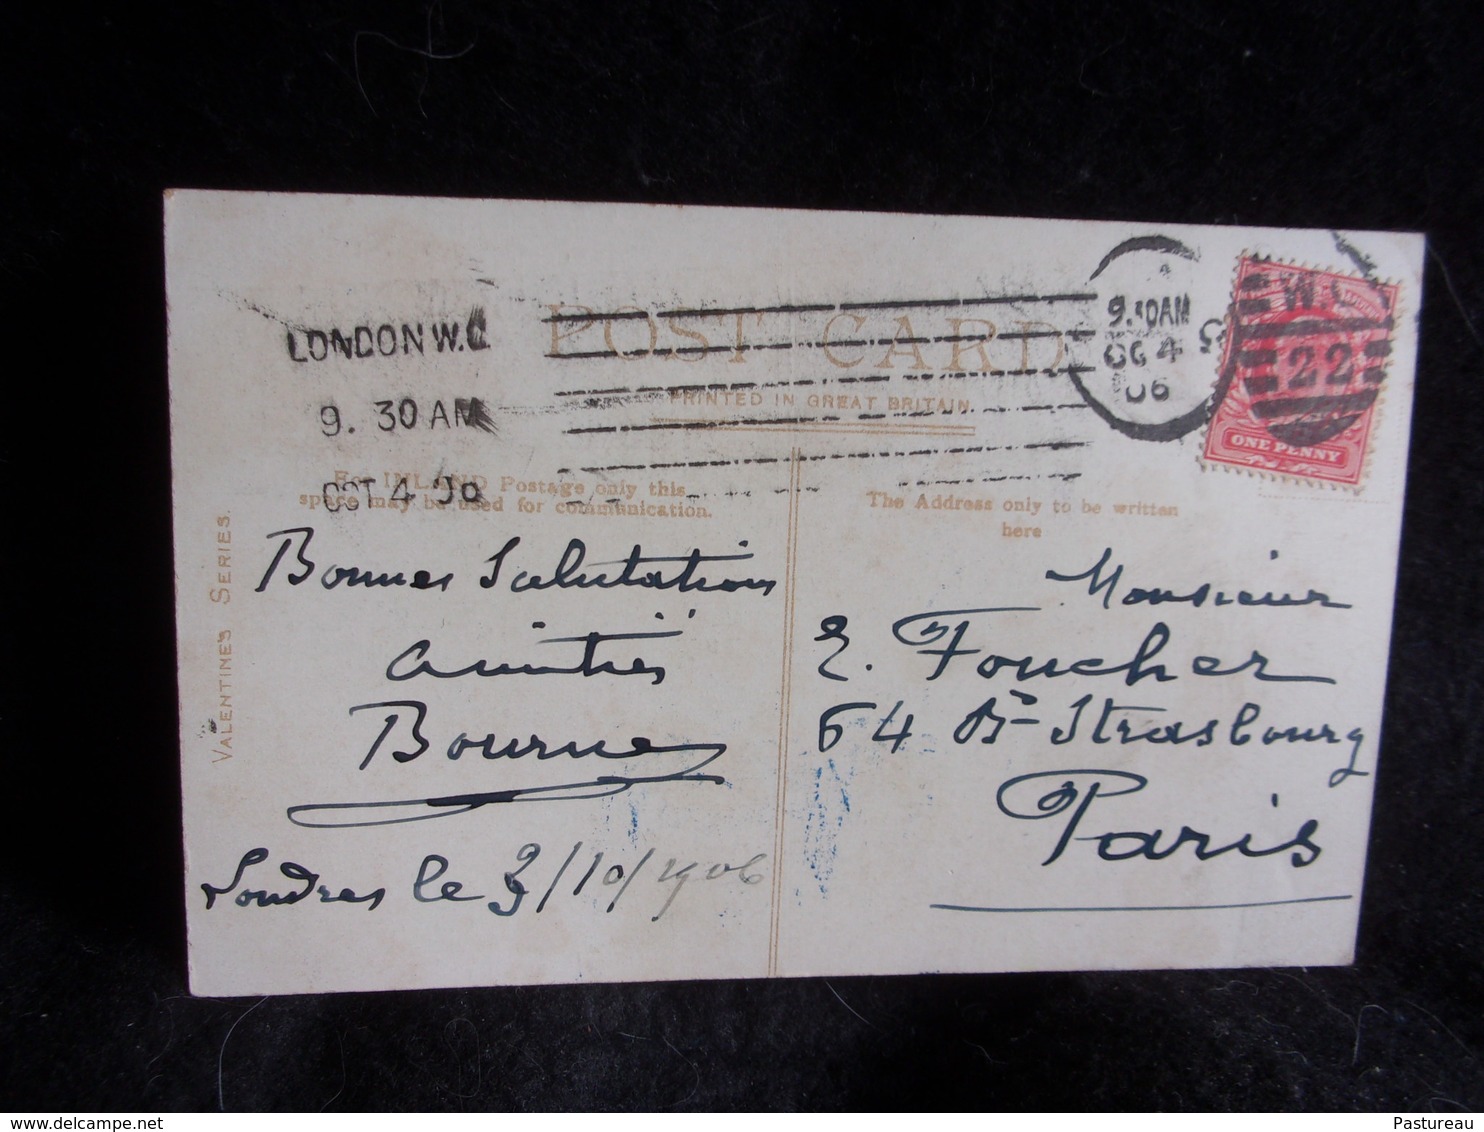 POST CARD
PRINTED IN GREAT BRITAIN
LONDON W.C
9. 30 AM
OCT 4 06
9.30AM
OC 4
06
W.C
22
ONE PENNY
For INLAND Postage only this
space may be used for communication.
The Address only to be written
here
VALENTINE'S SERIES.
Bonnes Salutations
Amitiés
Bourne
Londres le 3/10/1906
Monsieur
E. Foucher
64 Bd Strasbourg
Paris
Pastureau